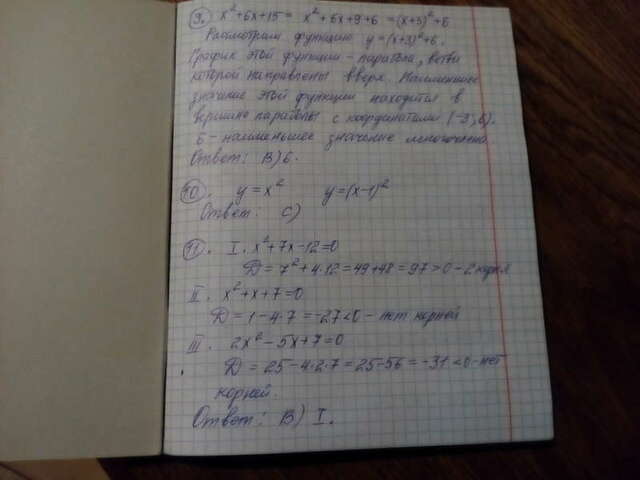 9. x²+6x+15 = x²+6x+9+6 = (x+3)²+6
Рассмотрим функцию y=(x+3)²+6.
График этой функции - парабола, ветви
которой направлены вверх. Наименьшее
значение этой функции находится в
вершине параболы с координатами (-3;6).
6 - наименьшее значение многочлена
Ответ: B) 6.
10. y=x² y=(x-1)²
Ответ: C)
11. I. x²+7x-12=0
D = 7²+4·12=49+48=97>0-2 корня
II. x²+x+7=0
D = 1-4·7=-27<0- нет корней
III. 2x²-5x+7=0
D = 25-4·2·7=25-56=-31<0-нет
корней.
Ответ: B) I.